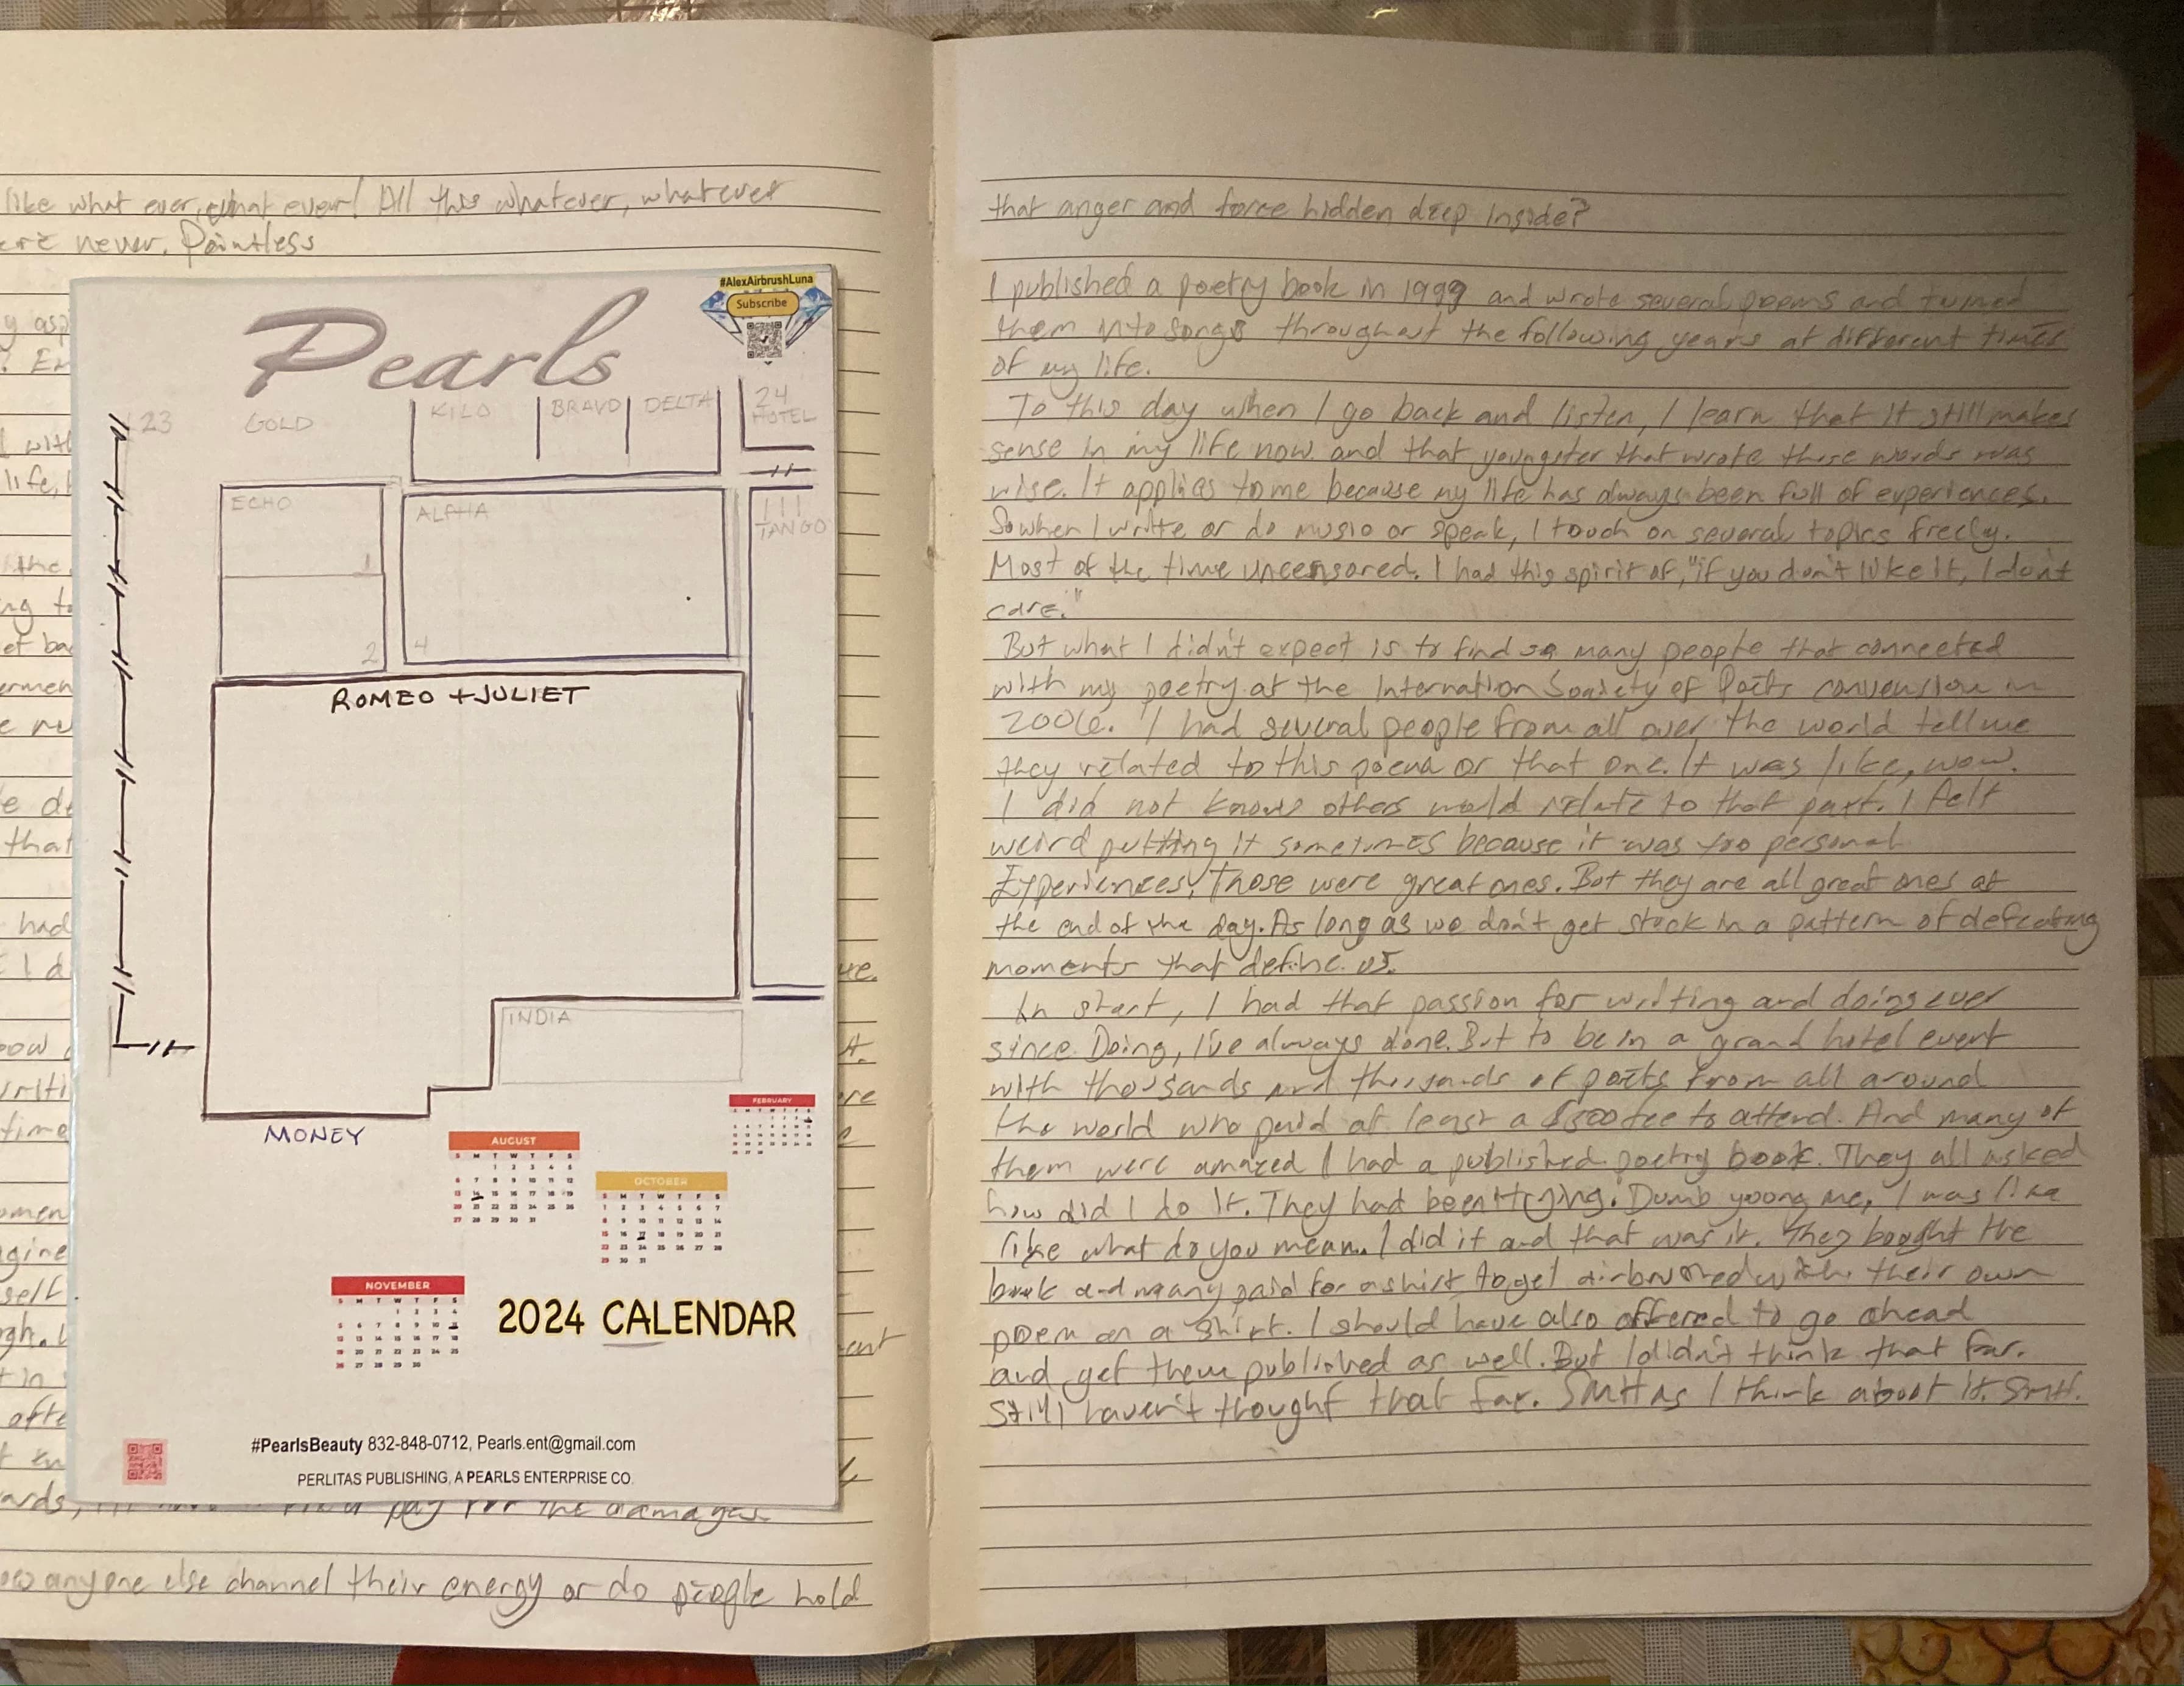 like what ever, what ever! All this whatever, whatever
never. Pointless
#AlexAirbrushLuna
Subscribe
Pearls
23
GOLD
KILO
BRAVO
DELTA
24
HOTEL
ECHO
1
2
ALPHA
4
111
TANGO
ROMEO + JULIET
INDIA
MONEY
FEBRUARY
AUGUST
OCTOBER
NOVEMBER
2024 CALENDAR
#PearlsBeauty 832-848-0712, Pearls.ent@gmail.com
PERLITAS PUBLISHING, A PEARLS ENTERPRISE CO.
pay for the damages.
anyone else channel their energy or do people hold
that anger and force hidden deep inside?
I published a poetry book in 1999 and wrote several poems and turned
them into songs throughout the following years at different times
of my life.
To this day when I go back and listen, I learn that it still makes
sense in my life now and that youngster that wrote those words was
wise. It applies to me because my life has always been full of experiences.
So when I write or do music or speak, I touch on several topics freely.
Most of the time uncensored. I had this spirit of, "if you don't like it, I don't
care."
But what I didn't expect is to find so many people that connected
with my poetry at the Internation Society of Poets convension in
2006. I had several people from all over the world tell me
they related to this poem or that one. It was like, wow.
I did not know others would relate to that part. I felt
weird putting it sometimes because it was too personal
Experiences. Those were great ones. But they are all great ones at
the end of the day. As long as we don't get stock in a pattern of defeating
moments that define us.
In short, I had that passion for writing and doing ever
since. Doing, I've always done. But to be in a grand hotel event
with thousands and thousands of poets from all around
the world who paid at least a $500 fee to attend. And many of
them were amazed I had a published poetry book. They all asked
how did I do it. They had been trying. Dumb young me, I was like
like what do you mean. I did it and that was it. They bought the
book and many paid for a shirt to get airbrushed with their own
poem on a shirt. I should have also offered to go ahead
and get them published as well. But I didn't think that far.
Still haven't thought that far. SMH as I think about it. SMH.